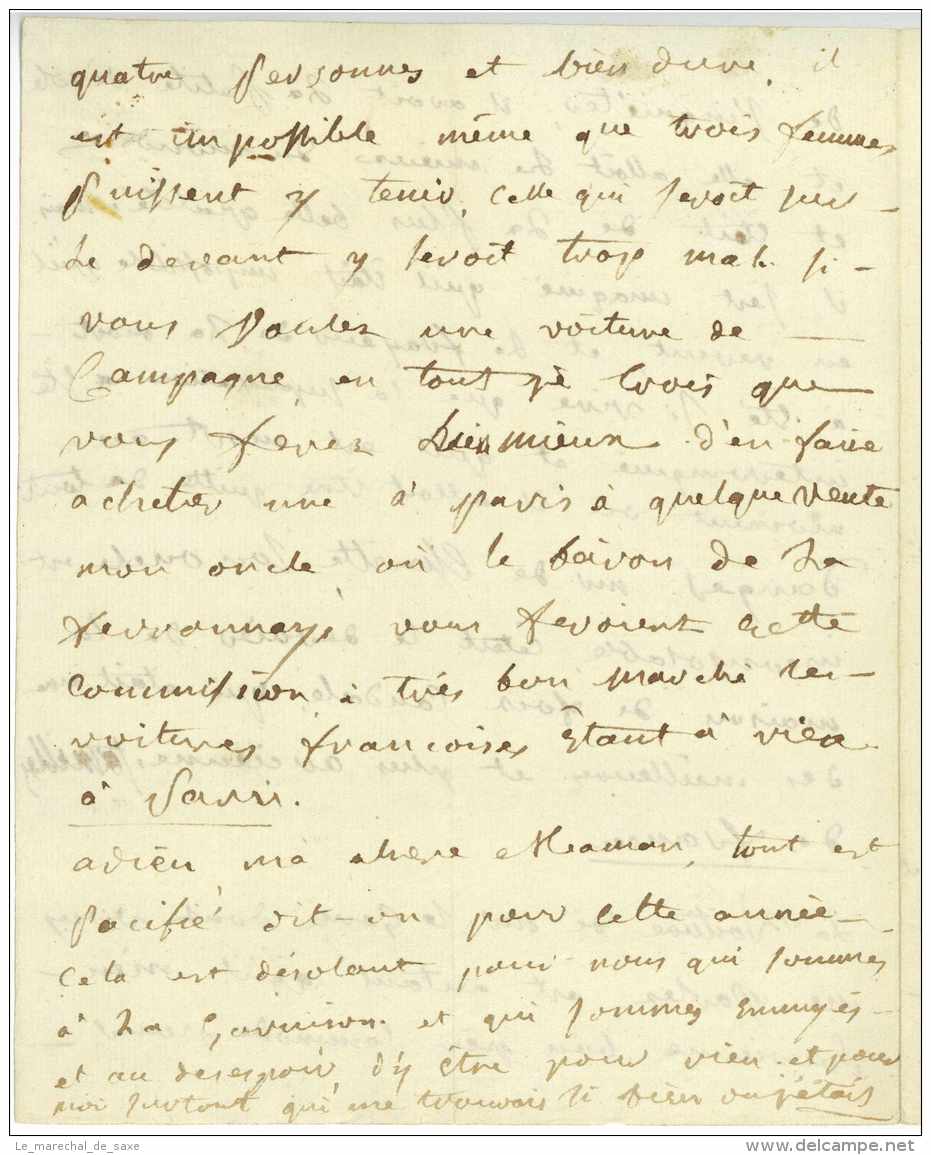 quatre personnes et bien dure. il
est impossible même que trois femmes
puissent y tenir, celle qui seroit sur
le devant y seroit trop mal. si
vous voulez une voiture de
Campagne en tout je crois que
vous ferez bien mieux d'en faire
acheter une à paris à quelque vente
mon oncle où le baron de la
ferronnays vous feroient cette
commission à très bon marché les
voitures françoises étant à rien
à Paris.
adieu ma chere Maman, tout est
pacifié dit-on pour cette année
cela est désolant pour nous qui sommes
à la Garnison et qui sommes ennuyés
et au desespoir d'y être pour rien. et pour
moi surtout qui me trouvois si bien ou j'étais
Le_marechal_de_saxe
www.delcampe.net